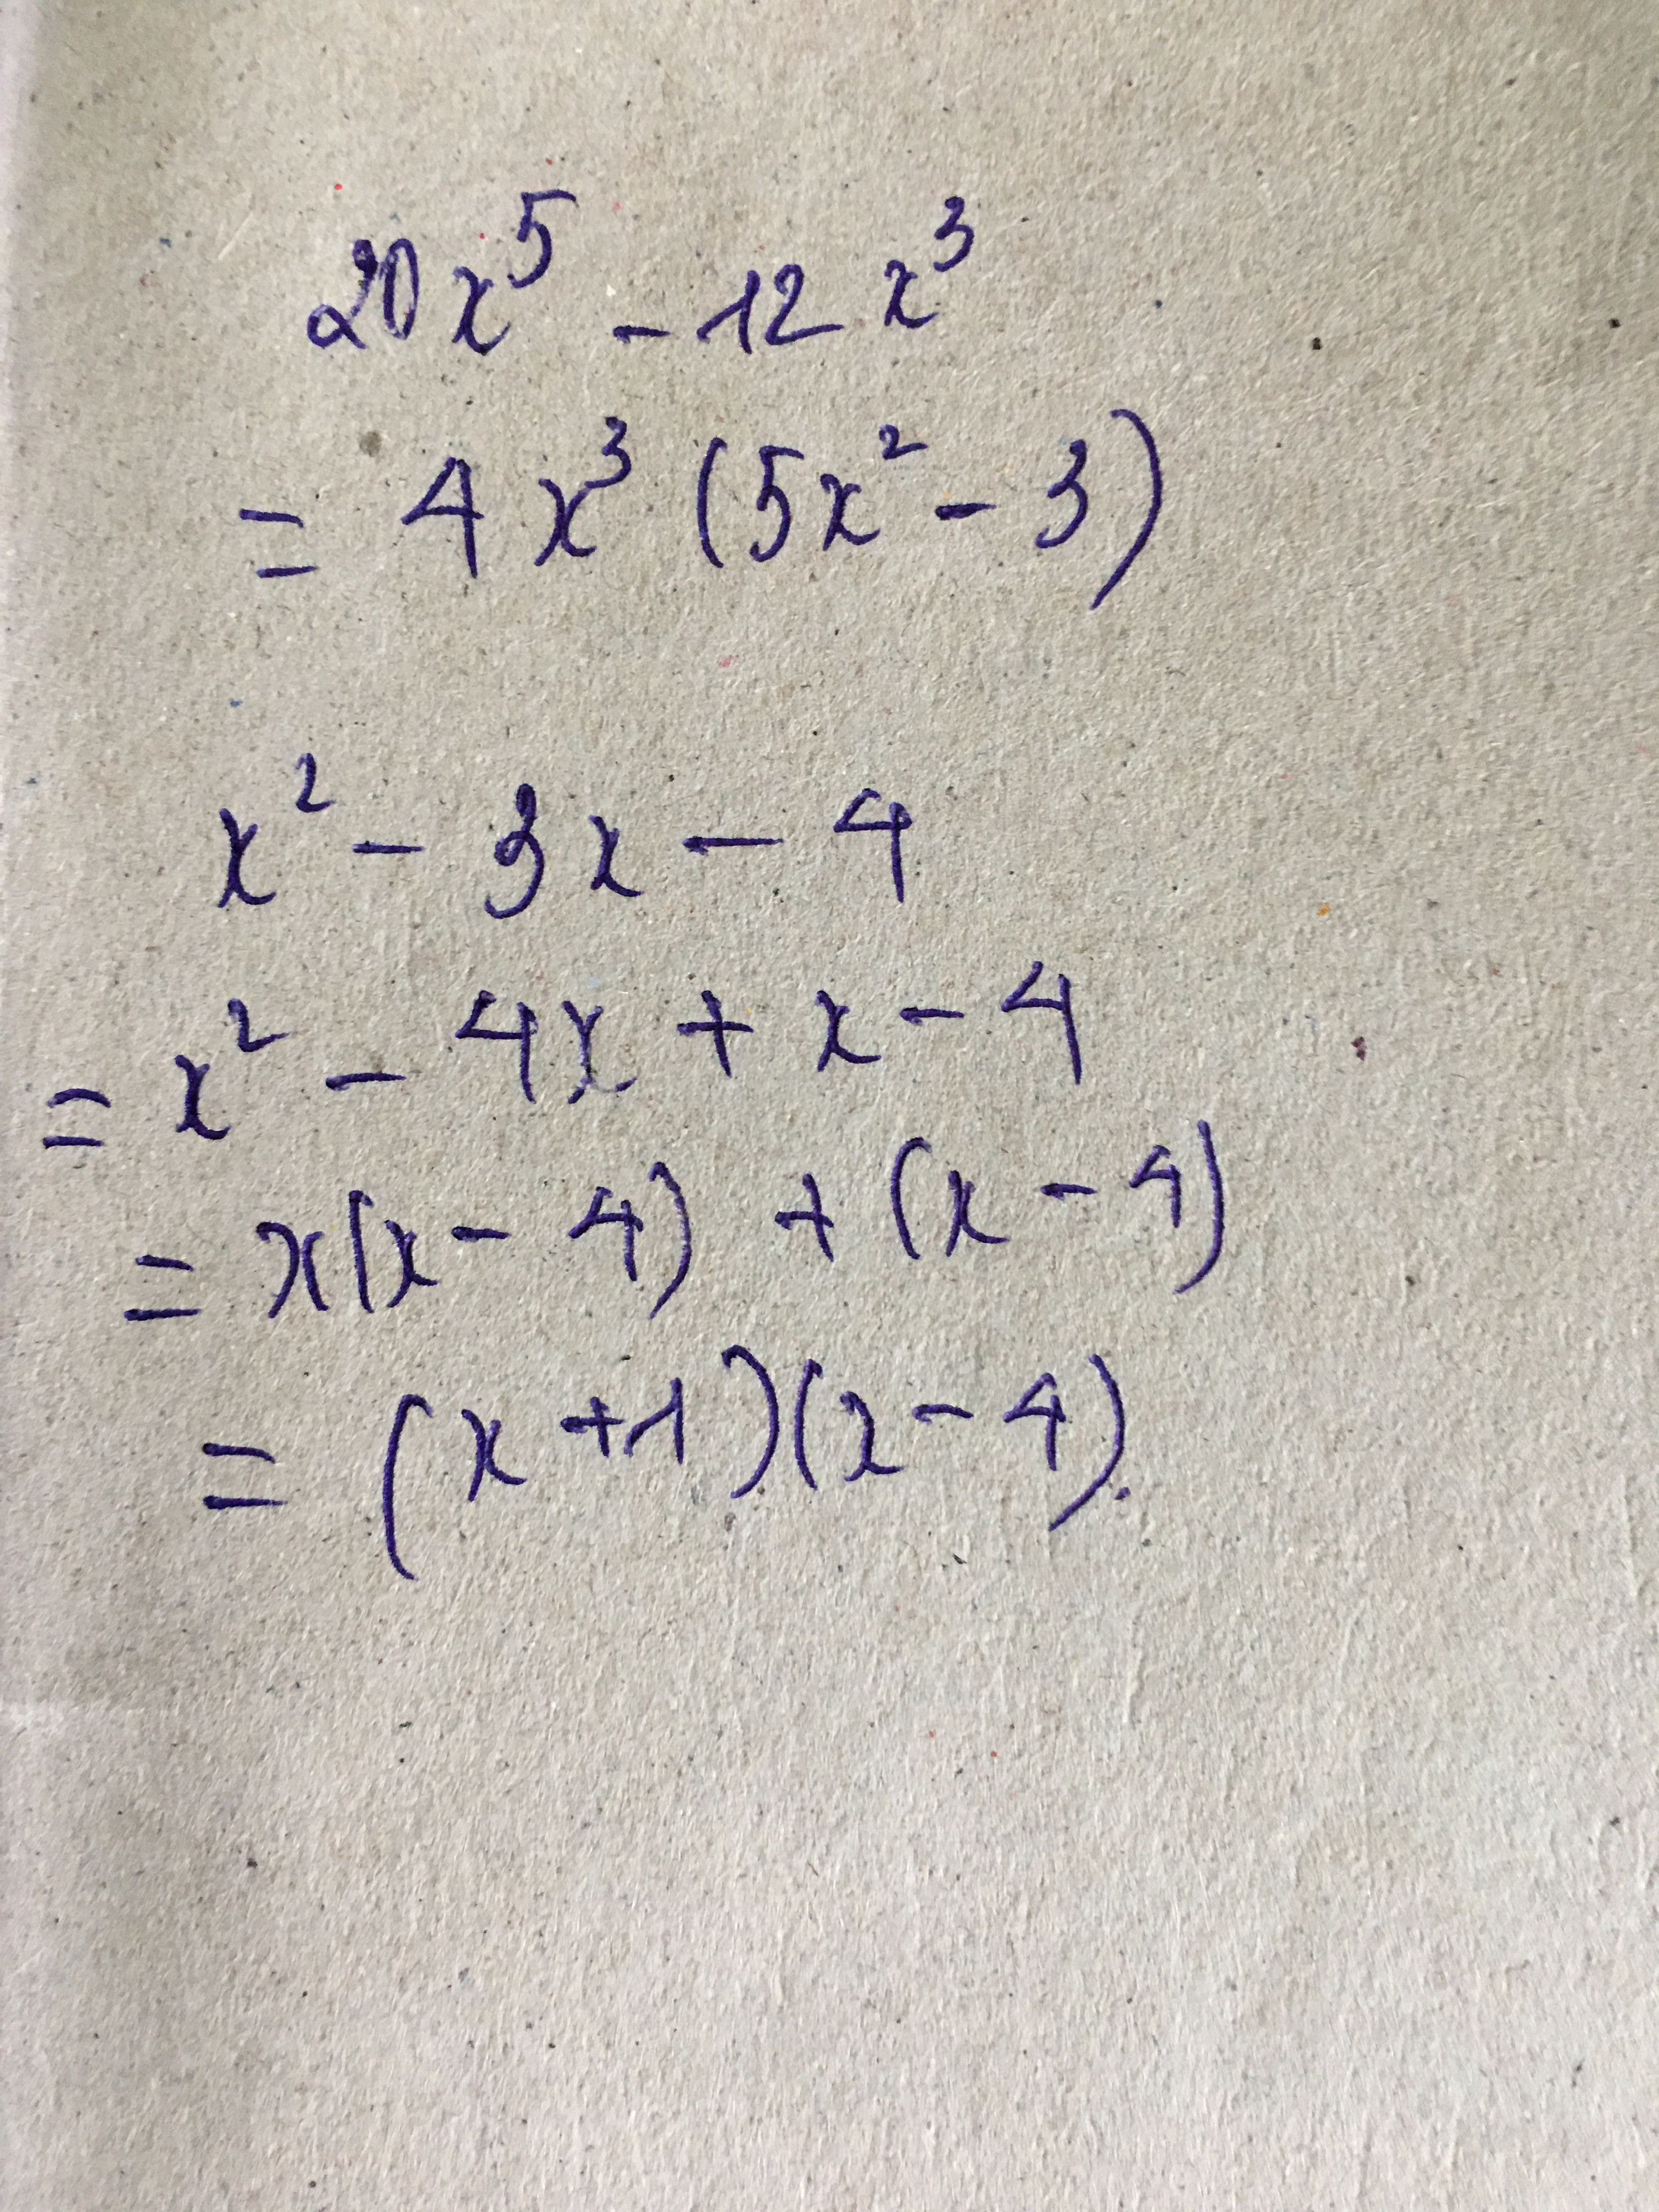 20x⁵ - 12x³
= 4x³ (5x² - 3)
x² - 3x - 4
= x² - 4x + x - 4
= x(x - 4) + (x - 4)
= (x + 1)(x - 4).